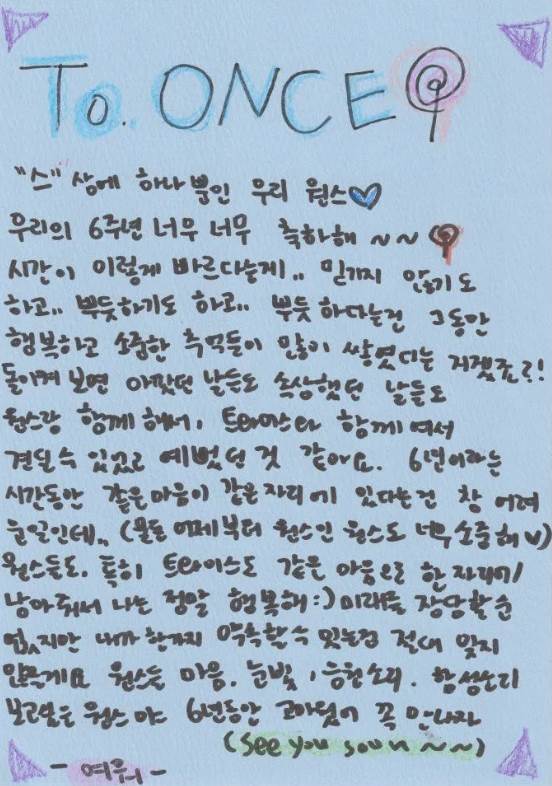 To. ONCE
"스"상에 하나뿐인 우리 원스
우리의 6주년 너무 너무 축하해 ~~
시간이 이렇게 빠르다는게.. 믿기지 않기도
하고.. 뿌듯하기도 하고.. 뿌듯하다는건 그동안
행복하고 소중한 추억들이 많이 쌓였다는 거겠죠?!
돌이켜 보면 아팠던 날들도 속상했던 날들도
원스랑 함께 해서, 트와이스와 함께여서
견딜 수 있었고 예뻤던 것 같아요. 6년이라는
시간동안 같은마음이 같은자리에 있다는건 참 어려
운일인데.. (물론 어제부터 원스인 원스도 너무소중해♥)
원스들도. 특히 트와이스도 같은 마음으로 한자리에
남아줘서 나는 정말 행복해:) 미래를 장담할순
없지만 내가 한가지 약속할수 있는건 절대 잊지
않을게요 원스들 마음. 눈빛, 응원소리. 함성소리
보고싶은 원스야 6년동안 고마웠어 꼭 만나자
(see you soon ~~)
- 쯔위 -